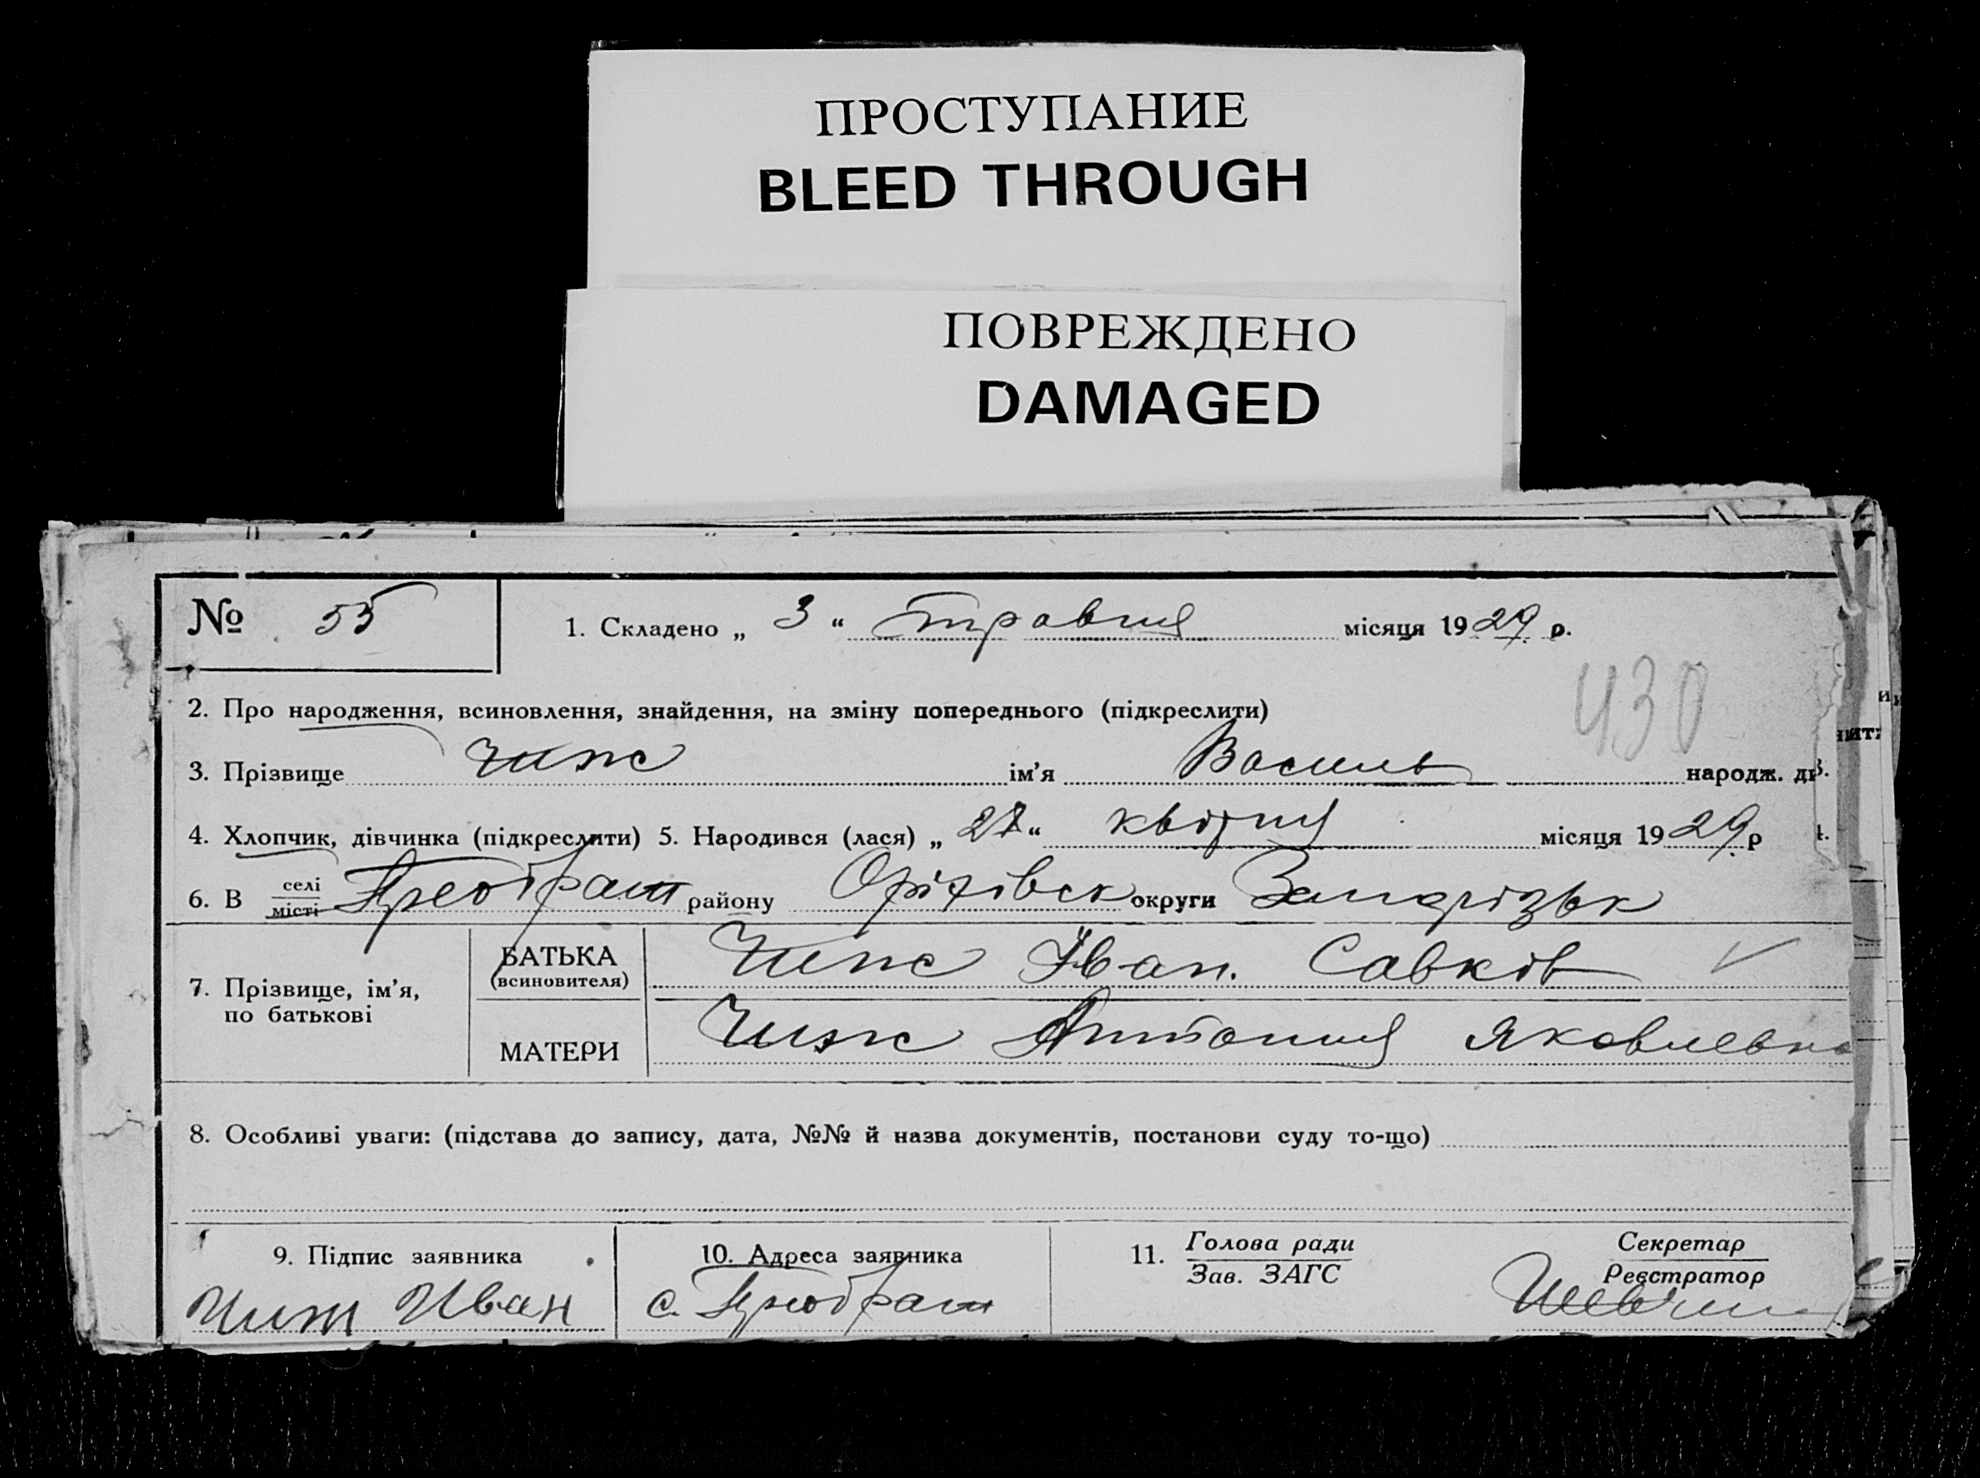 ПРОСТУПАНИЕ
BLEED THROUGH
ПОВРЕЖДЕНО
DAMAGED
№ 55
1. Складено „ 3 “ травня місяця 1929 р.
430
2. Про народження, всиновлення, знайдення, на зміну попереднього (підкреслити)
3. Прізвище Чиж ім’я Василь народж. ди
4. Хлопчик, дівчинка (підкреслити) 5. Народився (лася) „ 27 “ квітня місяця 1929 р
6. В селі місті Преображ району Оріхівськ округи Запорізьк
7. Прізвище, ім’я, по батькові
БАТЬКА (всиновителя) Чиж Іван. Савків
МАТЕРИ Чиж Антония Яковлевна
8. Особливі уваги: (підстава до запису, дата, №№ й назва документів, постанови суду то-що)
9. Підпис заявника
Чиж Иван
10. Адреса заявника
с. Преображ
11. Голова ради
Зав. ЗАГС
Секретар
Реєстратор